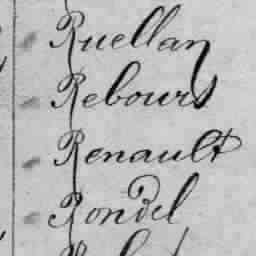 Ruellan
Rebours
Renault
Rondel